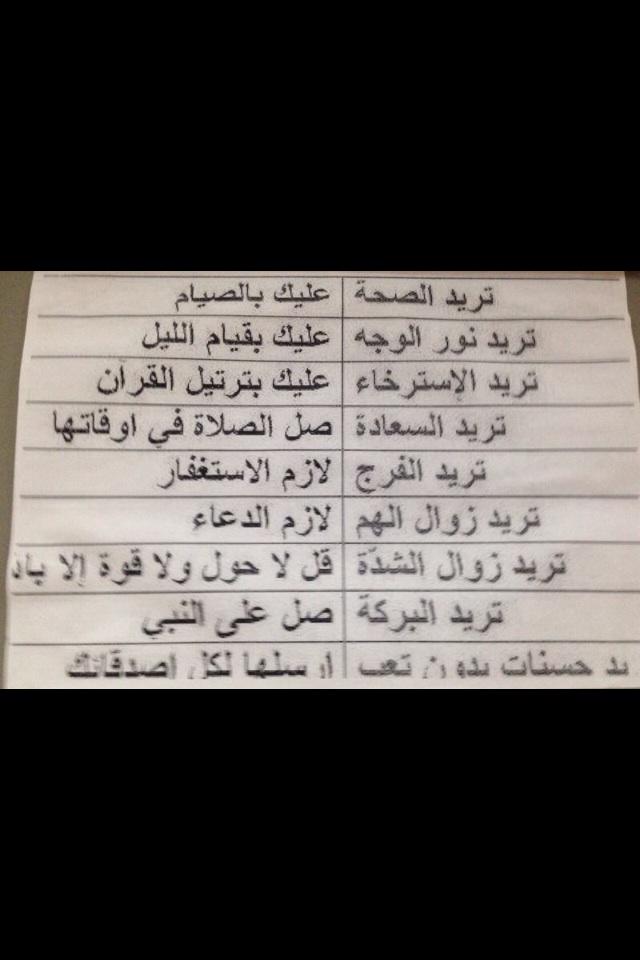 تريد الصحة عليك بالصيام
تريد نور الوجه عليك بقيام الليل
تريد الإسترخاء عليك بترتيل القرآن
تريد السعادة صل الصلاة في اوقاتها
تريد الفرج لازم الاستغفار
تريد زوال الهم لازم الدعاء
تريد زوال الشدّة قل لا حول ولا قوة إلا
تريد البركة صل على النبي
حسنات بدون تعب ارسلها لكل اصدقائك